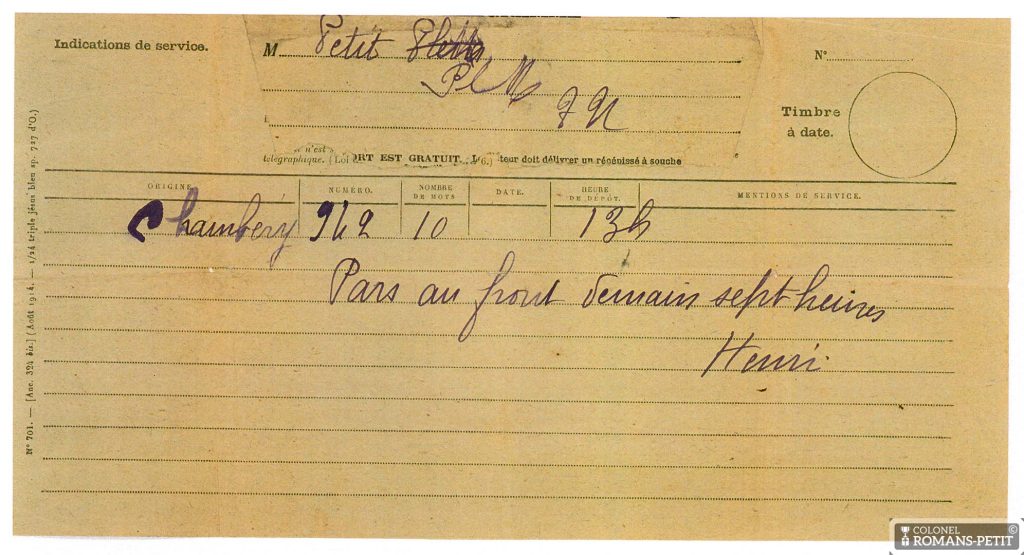 Indications de service.
M Petit
Pl
N°
Timbre
à date.
n'est
télégraphique. (Loi ORT EST GRATUIT. teur doit délivrer un récépissé à souche
ORIGINE. NUMÉRO. NOMBRE DE MOTS DATE. HEURE DE DÉPÔT. MENTIONS DE SERVICE.
Chambéry 942 10 13h
Pars au front demain sept heures
Henri.
N° 701. — [Anc. 324 bis.] (Août 1914. — 1/24 triple jésus bleu sp. 727 d'O.)
COLONEL
ROMANS-PETIT
©